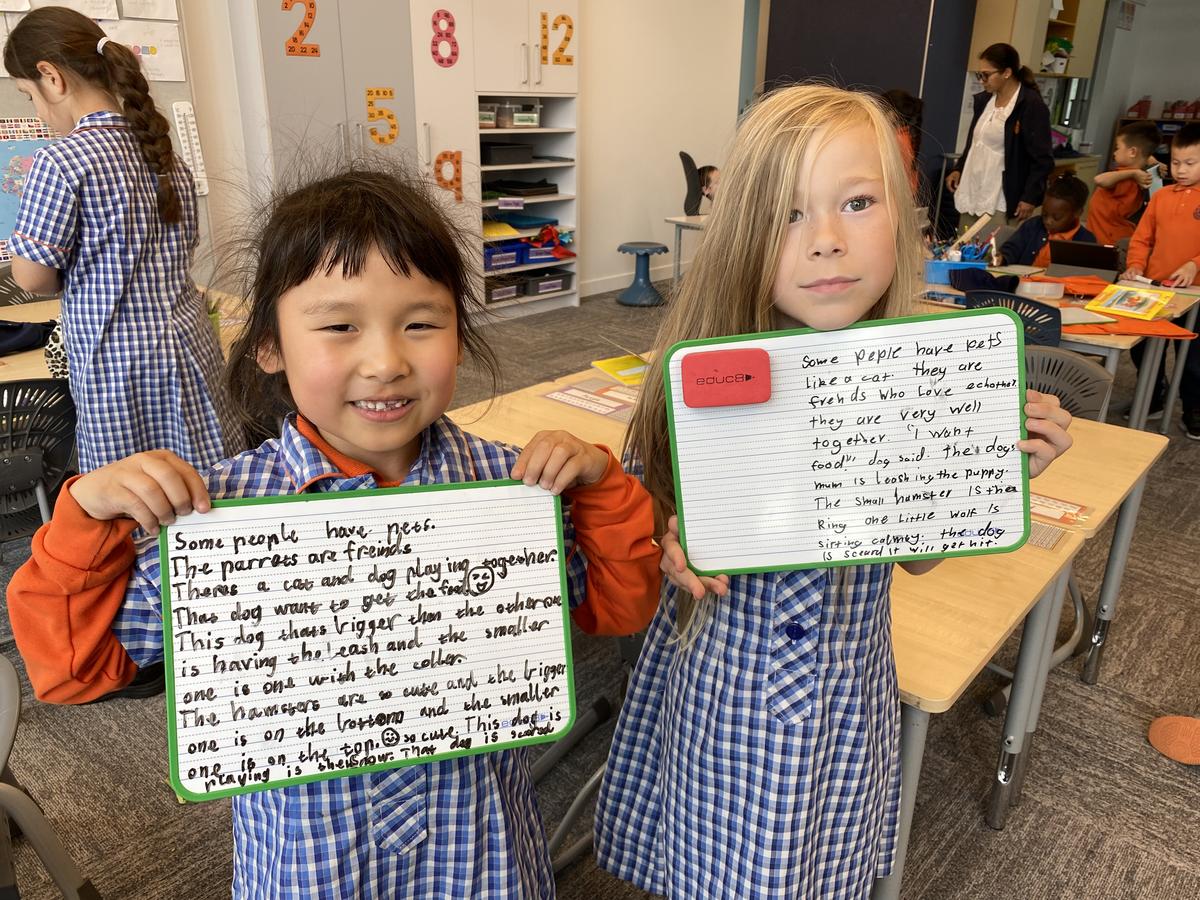 Some people have pets.
The parrots are freinds
Theres a cat and dog playing together.
That dog want to get the food
This dog thats bigger then the other one
is having the leash and the smaller
one is one with the coller.
The hamsters are so cute and the bigger
one is on the bottom and the smaller
one is on the top. so cute. This dog is
playing is the snow. That dog is scared
educ8
Some peple have pets
like a cat. they are
frends who love echother.
they are very well
together. "I want
food", dog said. the dogs
mum is leashing the puppy.
The small hamster is
Ring one little wolf is
sitting calmley. the dog
is scared it will get hit.
2
8
12
5
9